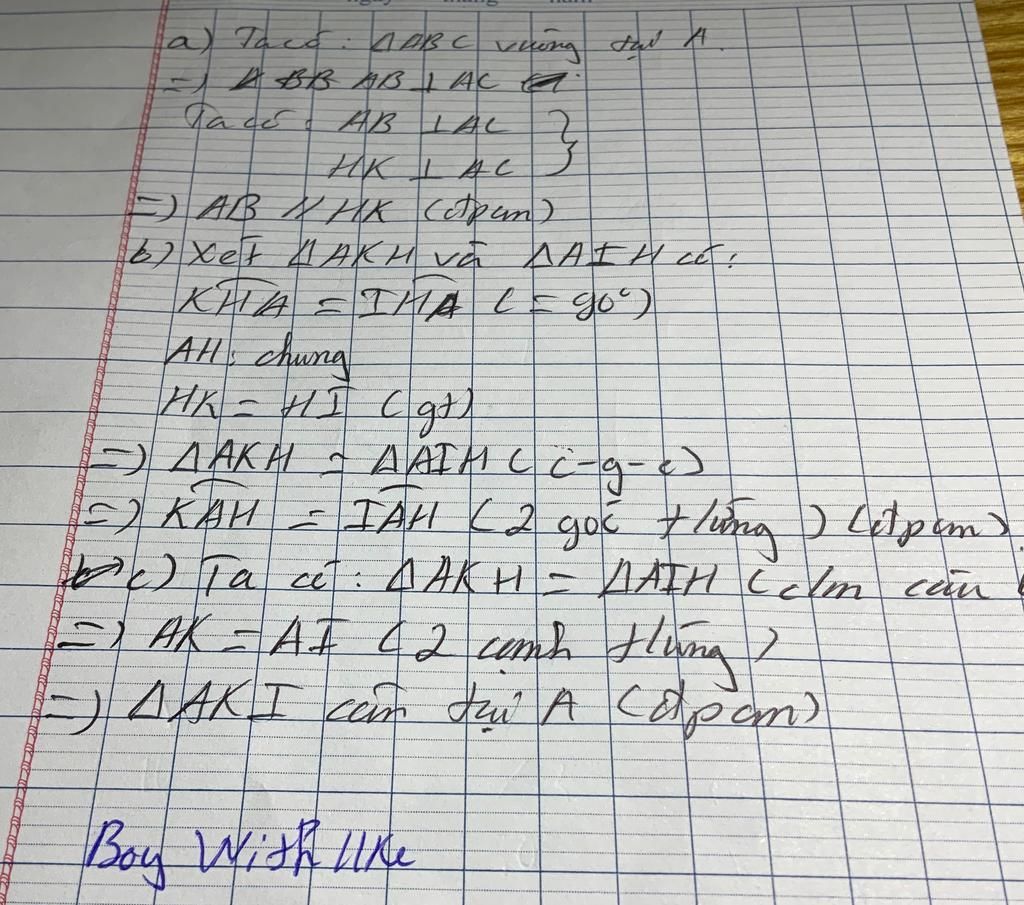 a) Ta có: ΔABC vuông tại A.
=) A BB AB ⊥ AC
Ta có: AB ⊥ AC }
HK ⊥ AC
=) AB // HK (đpcm)
b) Xét ΔAKH và ΔAIH có:
KHA = IHA (= 90°)
AH: chung
HK = HI (gt)
=) ΔAKH = ΔAIH (c-g-c)
=) KAH = IAH (2 góc t/ứng) (đpcm)
c) Ta có: ΔAKH = ΔAIH (c/m câu
=) AK = AI (2 cạnh t/ứng)
=) ΔAKI cân tại A (đpcm)
Boy With